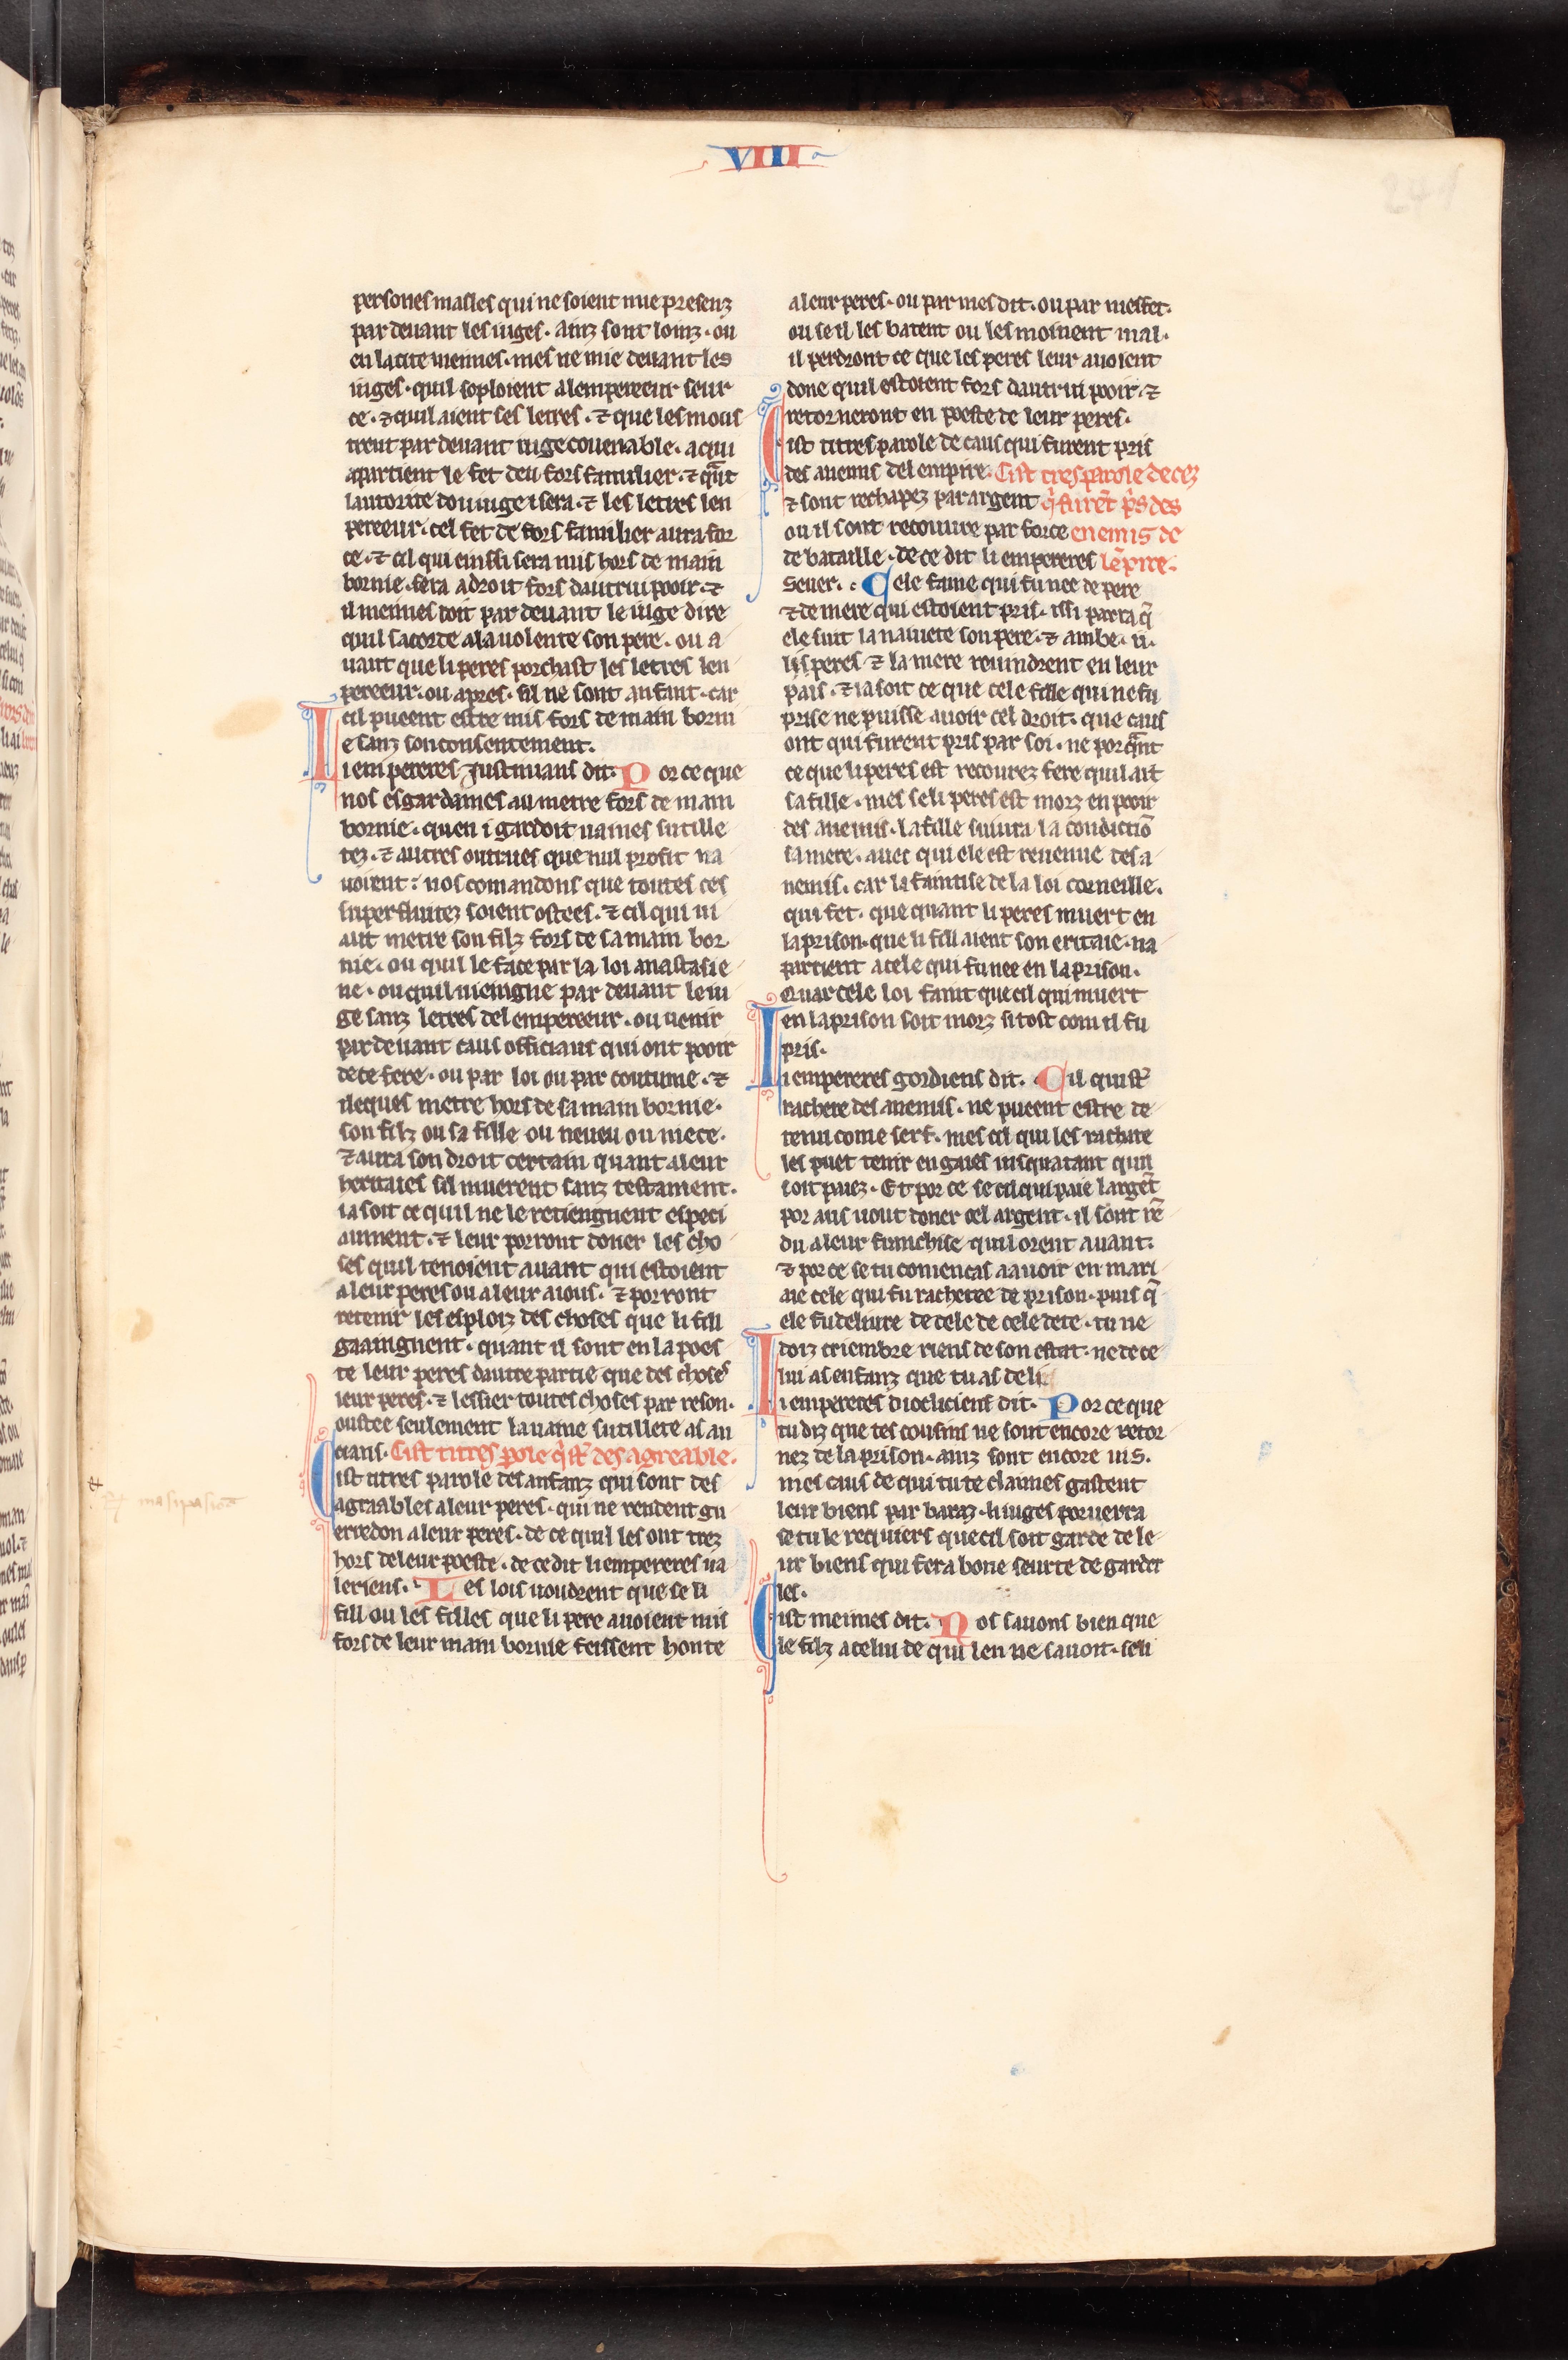 VIII
persones masles qui ne soient mie presenz
par deuant les iuges. ainz sont loinz. ou
en la cite meimes. mes ne mie deuant les
iuges. quil soploient alempereeur seur
ce. ⁊ quil aient ses letres. ⁊ que les mous
trent par deuant iuge couenable. a qui
apartient le fet deu fors familier. ⁊ qͣnt
lautorite dou iuge i sera. ⁊ les letres len
pereeur. cel fet de fors familier aura for
ce. ⁊ cil qui einssi sera mis hors de main
bornie. sera a droit fors dautrui pooir. ⁊
il meimes doit par deuant le iuge dire
quil sacorde a la uolente son pere. ou a
uant que li peres porchast les letres len
pereeur. ou apres. sil ne sont anfant. car
cil pueent estre mis fors de main borni
e sanz son consentement.
Li empereres Justinians dit. Por ce que
nos esgardames au metre fors de main
bornie. quen i gardoit uaines sutille
tez. ⁊ autres outrues que nul profit na
uoient: nos comandons que toutes ces
superfluitez soient ostees. ⁊ cil qui ui
aut metre son filz fors de sa main bor
nie. ou quil le face par la loi anastasie
ne. ou quil uieingne par deuant le iu
ge sanz letres del empereeur. ou uenir
par deuant caus officiaus qui ont pooir
de ce fere. ou par loi ou par coutume. ⁊
ileques metre hors de sa main bornie.
son filz ou sa fille ou neueu ou niece.
⁊ aura son droit certain quant a leur
heritaies sil muerent sanz testament.
ia soit ce quil ne le retiengnent especi
aument. ⁊ leur porront doner les cho
ses quil tenoient auant qui estoient
a leur peres ou a leur aious. ⁊ porront
retenir les esploiz des choses que li fill
gaaingnent. quant il sont en la poes
te leur peres dautre partie que des choses
leur peres. ⁊ lessier toutes choses par reson.
oustee seulement la uaine sutillete as an
cians. Cist titres ꝑole q̍ st̾ des agreable.
Cist titres parole des anfanz qui sont des
agraables a leur peres. qui ne rendent gu
erredon a leur peres. de ce quil les ont trez
hors de leur poeste. de ce dit li empereres ua
leriens. Les lois uoudrent que se li
fill ou les filles que li pere auoient mis
fors de leur main bornie feissent honte
a leur peres. ou par mesdit. ou par mesfet.
ou se il les batent ou les moinent mal.
il perdront ce que les peres leur auoient
done quil estoient fors dautrui pooir. ⁊
retorneront en poeste de leur peres.
Cist titres parole de caus qui furent pris
des anemis del empire. Cist tres parole de cez
⁊ sont rechapez par argent q̍ furēt p̍s des
ou il sont recouure par force enemis de
de bataille. de ce dit li empereres lēpire.
Seuer. : Cele fame qui fu nee de pere
⁊ de mere qui estoient pris. issi par ta q̄
ele suit la naiuete son pere. ⁊ ambe. ii.
li peres ⁊ la mere reuindrent en leur
pais. ⁊ ia soit ce que cele fille qui ne fu
prise ne puisse auoir cel droit. que caus
ont qui furent pris par soi. ne porqͣnt
ce que li peres est recourez fere quil ait
sa fille. mes se li peres est morz en pooir
des anemis. la fille suiura la condictiō
sa mere. auec qui ele est reuenue des a
nemis. car la faintise de la loi corneille.
qui fet. que quant li peres muert en
la prison. que li fill aient son eritaie. na
partient a cele qui fu nee en la prison.
Quar cele loi faint que cil qui muert
en la prison soit morz si tost com il fu
pris.
Li empereres gordiens dit. Cil qui st̾
rachete des anemis. ne pueent estre de
tenu come serf. mes cil qui les rachate
les puet tenir en gaies iusqua tant quil
soit paiez. Et por ce se cil qui paie largēt
por aus uout doner cel argent. il sont rē
du a leur franchise quil orent auant.
⁊ por ce se tu comencas a auoir en mari
aie cele qui fu rachetee de prison. puis q̄
ele fu deliure de cele de cele dete. tu ne
doiz criembre riens de son estat. ne de ce
lui as enfanz que tu as de li
Li empereres dioclicient dit. Por ce que
tu diz que tes cousins ne sont encore retor
nez de la prison. ainz sont encore uis.
mes caus de qui tu te claimes gastent
leur biens par baraz. li iuges poruerra
se tu le requiers que cil soit garde de le
ur biens qui fera bone seurte de garder
les.
Cist meimes dit. Nos sauons bien que
le filz a celui de qui len ne sauoit. seli